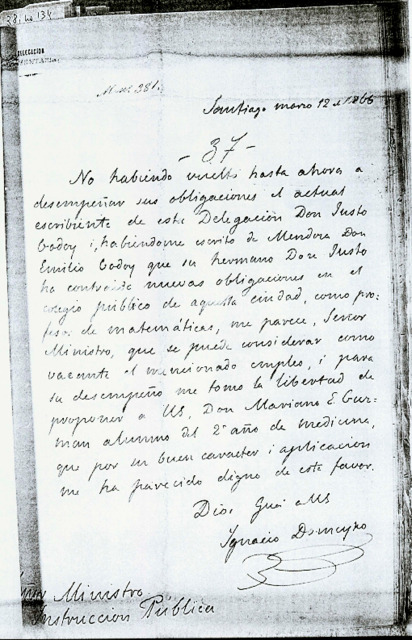 38, no 134
DELEGACION
UNIVERSITARIA
Num. 381.
Santiago marzo 12 de 1866
- 37 -
No habiendo vuelto hasta ahora a
desempeñar sus obligaciones el actual
escribiente de esta Delegacion Don Justo
Godoy i, habiendome escrito de Mendoza Don
Emilio Godoy que su hermano Don Justo
ha contraido nuevas obligaciones en el
colegio público de aquella ciudad, como pro-
fesor de matemáticas, me parece, Señor
Ministro, que se puede considerar como
vacante el mencionado empleo, i para
su desempeño me tomo la libertad de
proponer a US, Don Mariano E. Guz-
man alumno del 2º año de medicina,
que por su buen caracter i aplicacion
me ha parecido digno de este favor.
Dios gue a US
Ignacio Domeyko
Ministro
Instruccion Pública